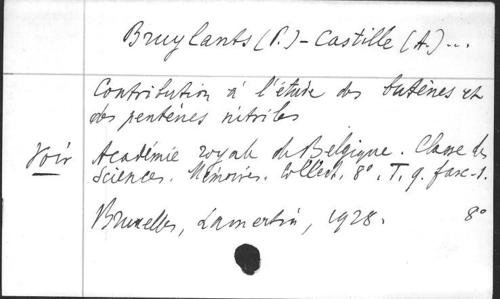 Bruylants (P.) - Castille (A.) ...
Contribution à l'étude des butènes et
des pentènes nitriles
Voir Académie royale de Belgique. Classe des
Sciences. Mémoires. Collect. 8°. T. 9. fasc. 1.
Bruxelles, Lamertin, 1928. 8°